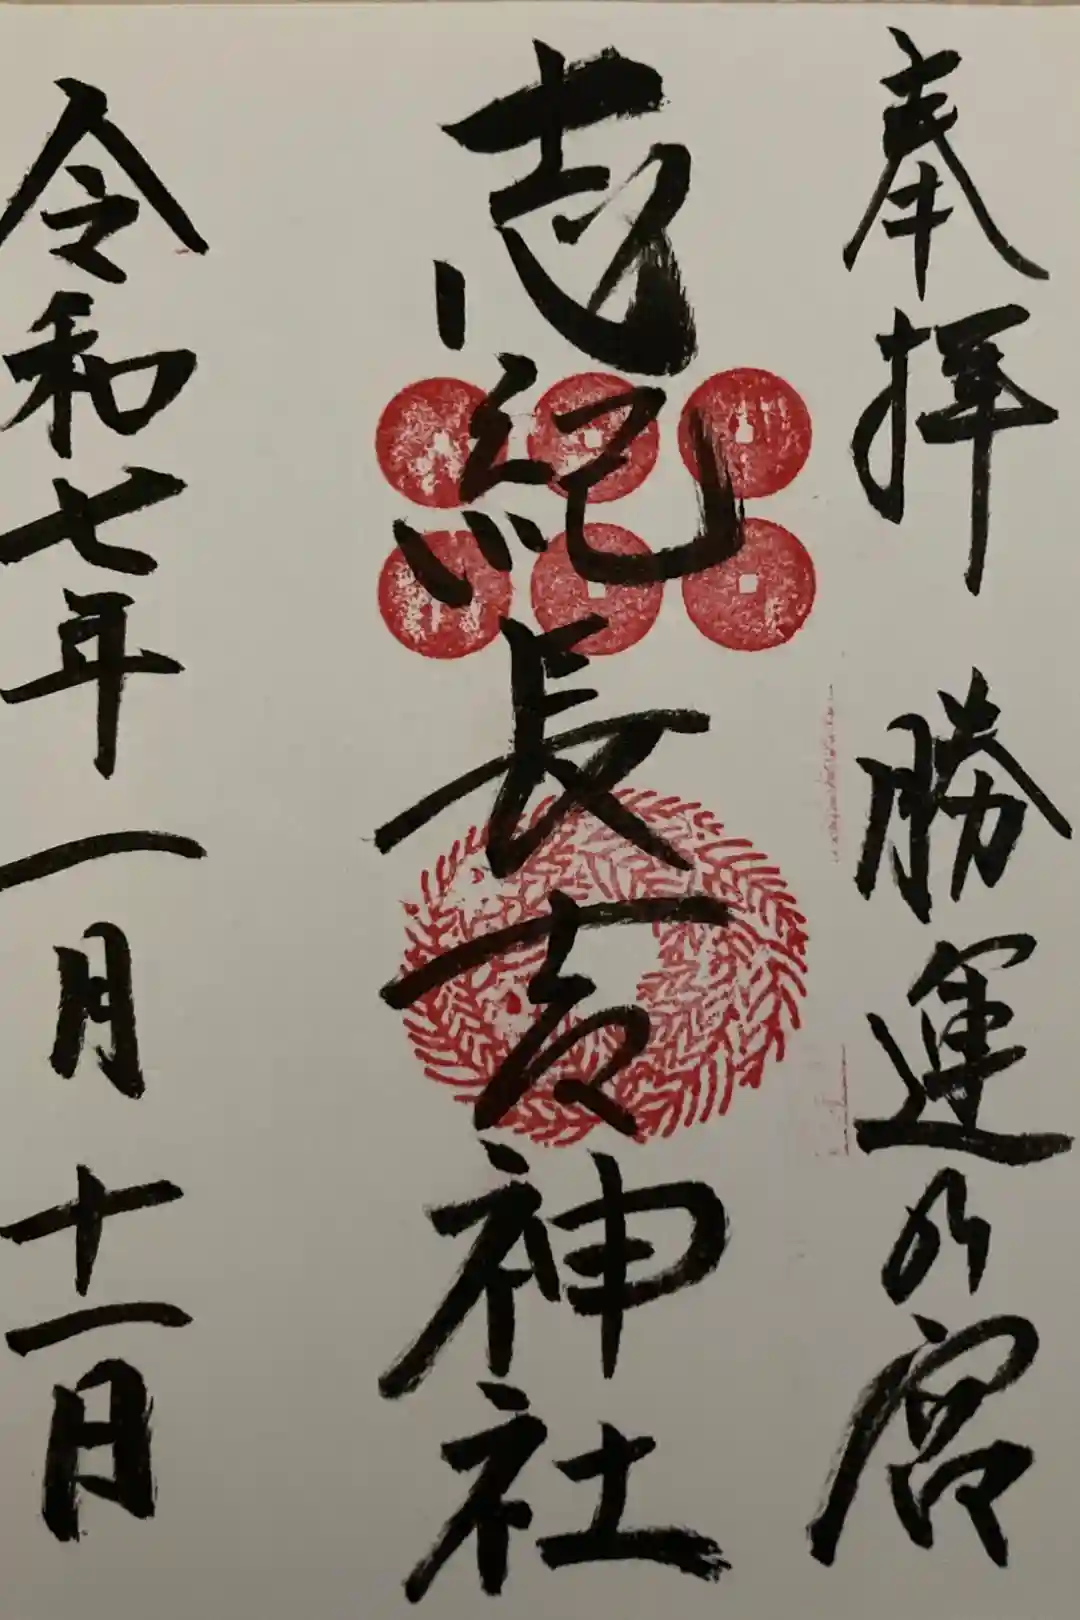 奉拝 勝運乃宮
志紀長吉神社
令和七年一月十一日